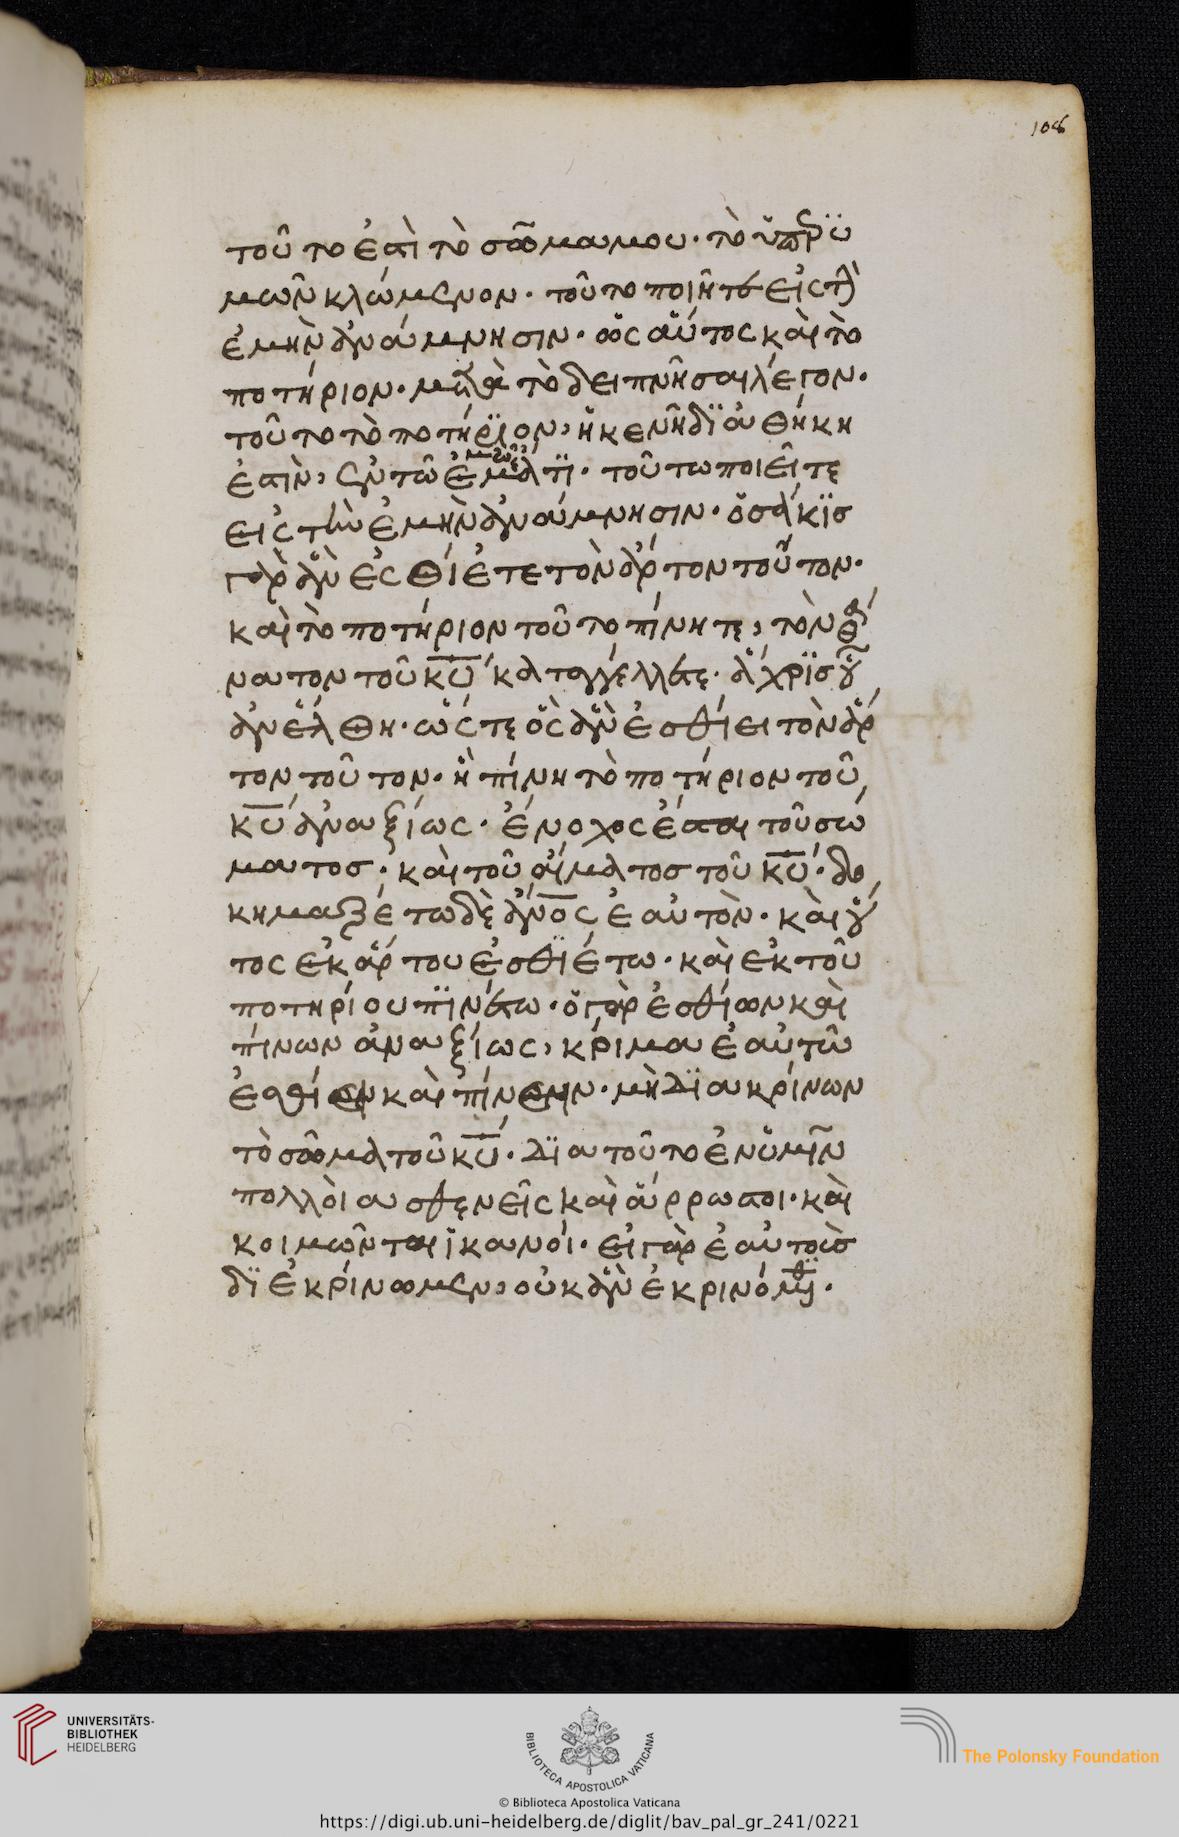 108
τοῦτο ἐστὶ τὸ σῶμα μου· τὸ ὑπὲρ ὑ
μῶν κλώμενον· τοῦτο ποιῆτε εἰς τὴν
ἐμὴν ἀνάμνησιν· ὡς αὔτος καὶ τὸ
ποτήριον· μετὰ τὸ δειπνῆσαι λέγον·
τοῦτο τὸ ποτήρϊον, ἡ κενῆ δϊαθήκη
ἐστὶν, ἐν τῶ ἐμῶ αἵματϊ· τοῦτω ποιεῖτε
εἰς τὴν ἐμὴν ἀνάμνησιν· ὅσάκϊσ
γὰρ ἂν ἐσθίἐτε τὸν ἄρτον τοῦτον·
καὶ τὸ ποτήριον τοῦτο πίνητε, τὸν θά
νατον τοῦ κ̅υ̅ καταγγέλλετε· ἄχρϊσ οὗ
ἂν ἔλθη· ὥς τε ὃς ἂν ἐσθίει τὸν ἄρ
τον τοῦτον· ἢ πίνη τὸ ποτήριον τοῦ
κ̅υ̅ ἀναξίως· ἔνοχος ἔσται τοῦ σώ
ματοσ· καὶ τοῦ αἵματοσ τοῦ κ̅υ̅· δο
κημαζέτω δὲ ἀν̅ο̅ς ἑαὐτὸν· καὶ οὕ
τος ἐκ ἄρτου ἐσθϊέτω· καὶ ἐκ τοῦ
ποτηρίου πϊνέτω· ὁ γὰρ ἐσθίων καὶ
πίνων ἀναξίως, κρίμα ἑαὐτῶ
ἐσθίειν καὶ πίνειν· μὴ δϊακρίνων
τὸ σῶμα τοῦ κ̅υ̅· δϊατοῦτο ἐν ὑμῖν
πολλοὶ ασθενεῖς καὶ ἄρρωστοι· καὶ
κοιμῶνται ἵκανοί· εἰ γὰρ ἑαὐτοὺσ
δϊἐκρίνωμεν, οὐκ ἂν ἐκρινόμεθα·
UNIVERSITÄTS-
BIBLIOTHEK
HEIDELBERG
BIBLIOTECA APOSTOLICA VATICANA
The Polonsky Foundation
© Biblioteca Apostolica Vaticana
https://digi.ub.uni-heidelberg.de/diglit/bav_pal_gr_241/0221